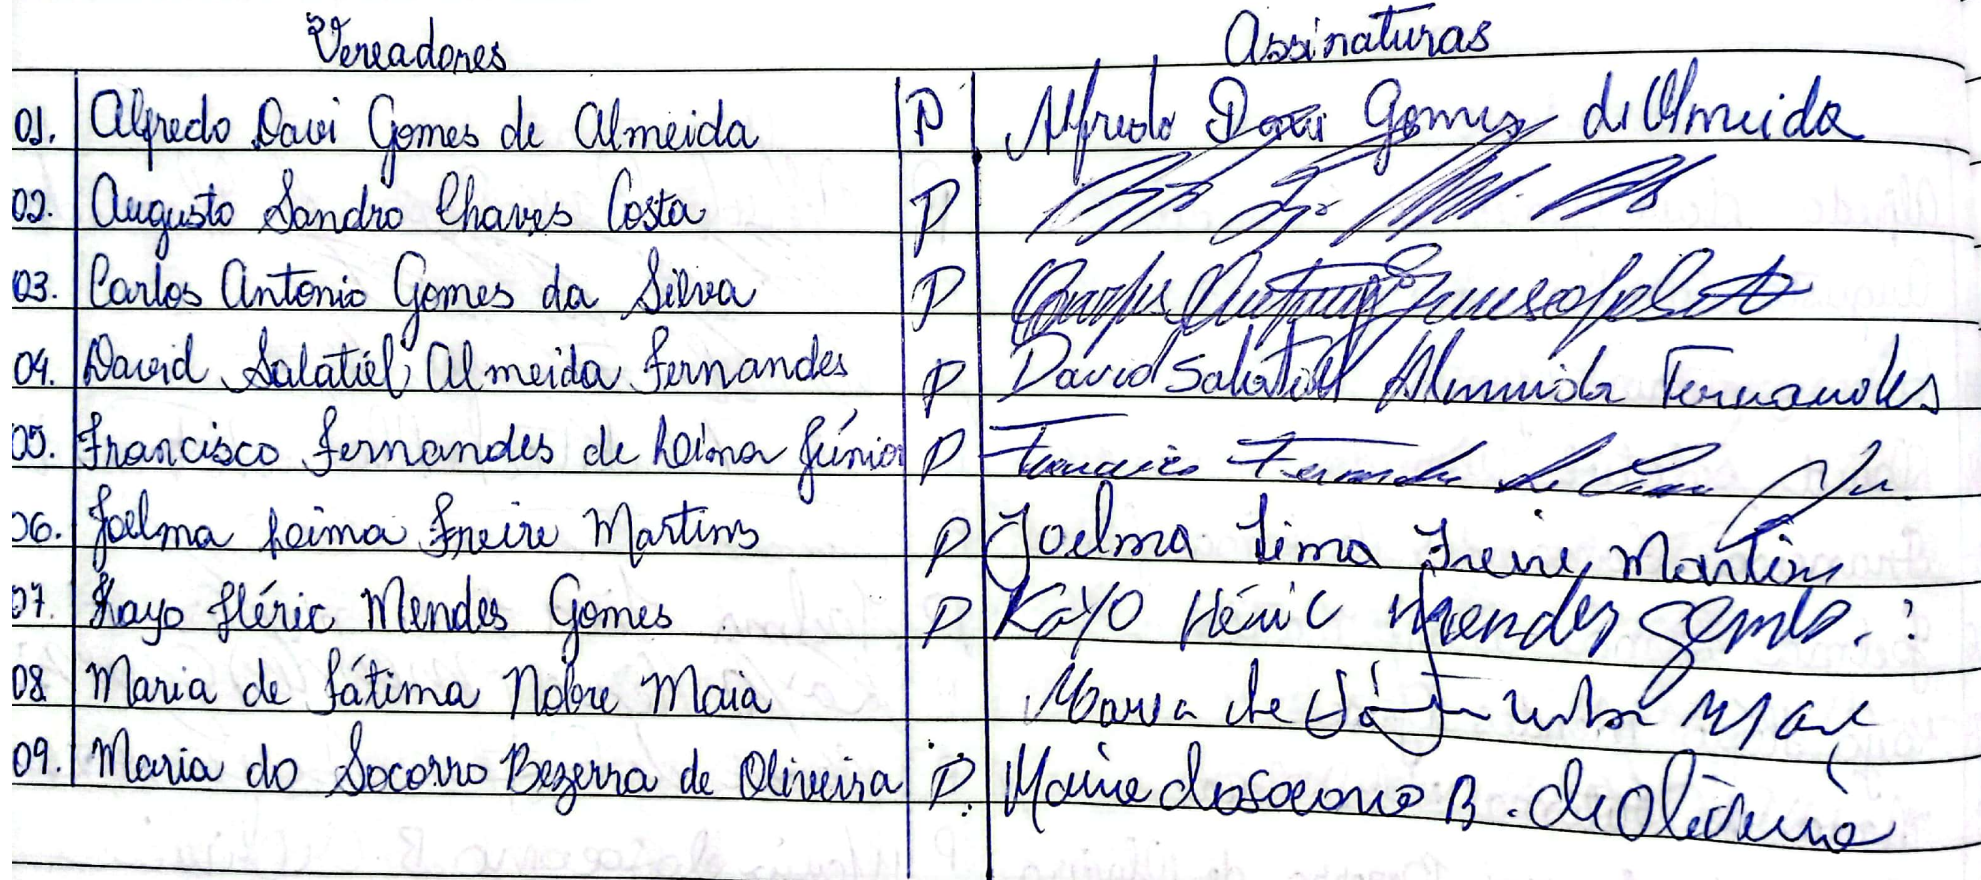 Vereadores Assinaturas
01. Alfredo Davi Gomes de Almeida P Alfredo Davi Gomes de Almeida
02. Augusto Sandro Chaves Costa P
03. Carlos Antonio Gomes da Silva P Carlos Antonio
04. David Salatiél Almeida Fernandes P David Salatiel Almeida Fernandes
05. Francisco Fernandes de Leima Júnior P Francisco Fernandes de Lima Jr.
06. Joelma Leima Freire Martins P Joelma Lima Freire Martins
07. Kayo Héric Mendes Gomes P Kayo Héric Mendes Gomes
08 Maria de Fátima Nobre Maia Maria de
09. Maria do Socorro Bezerra de Oliveira P. Maria do Socorro B. de Oliveira